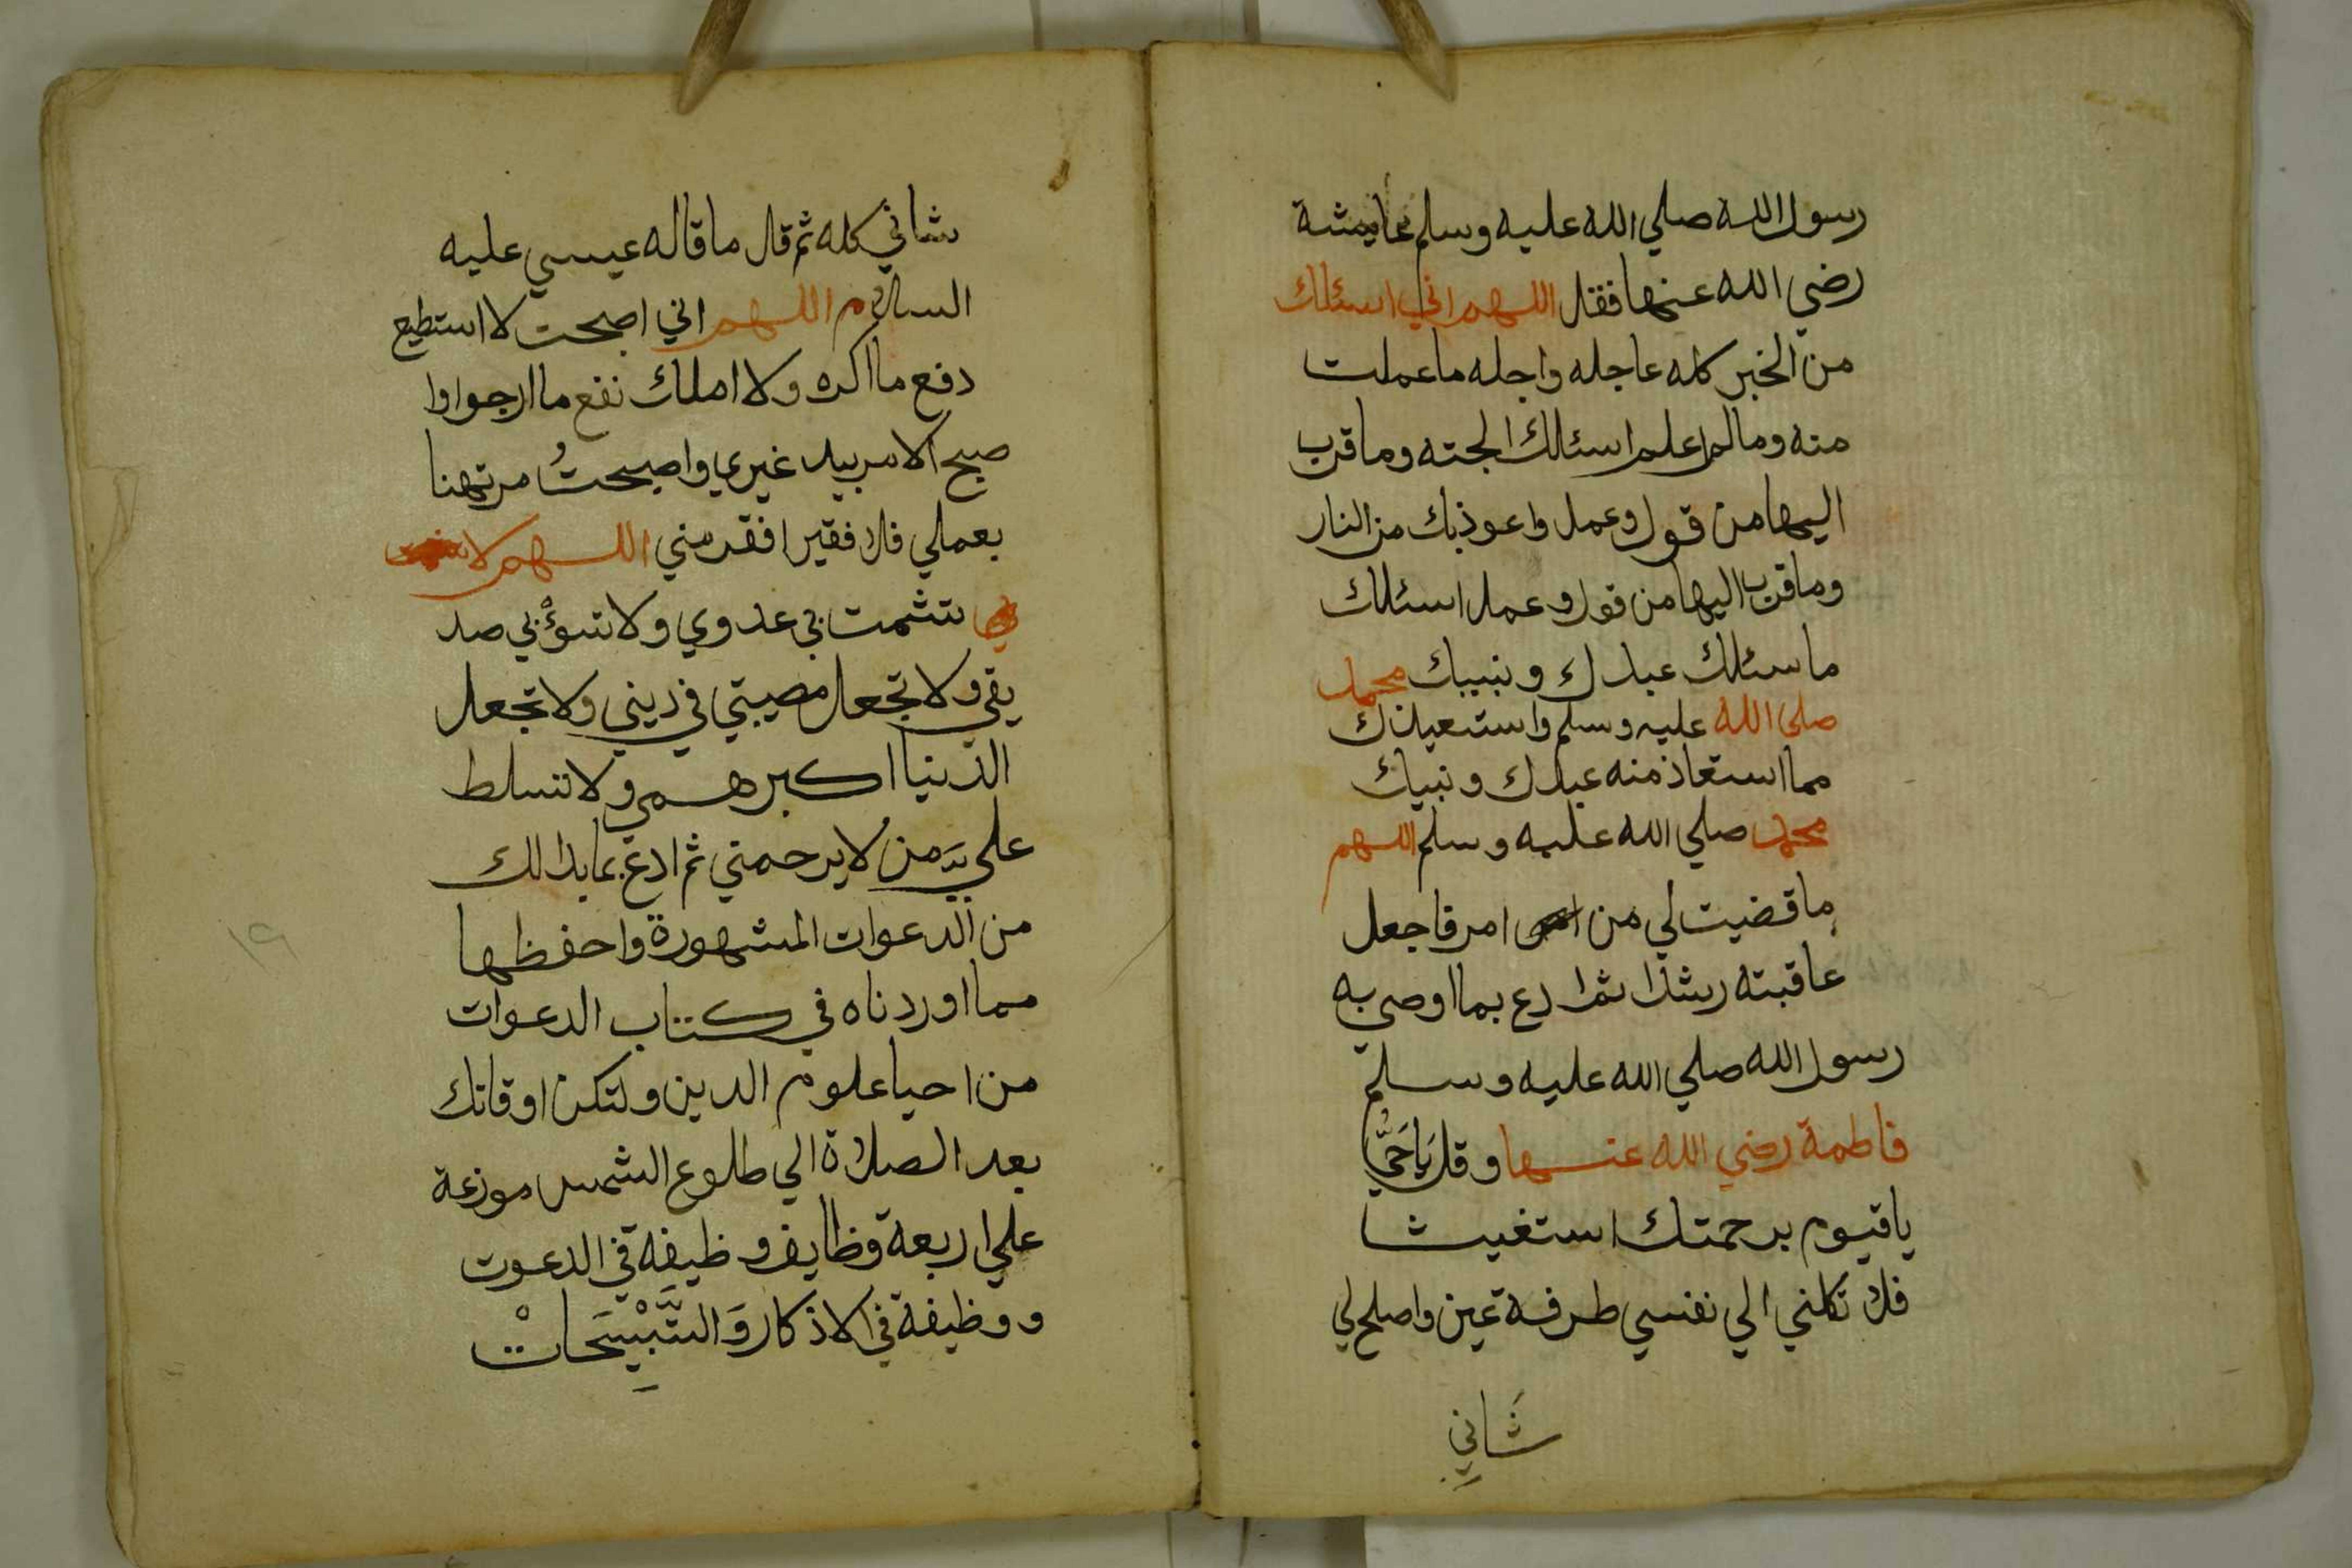 رسول الله صلي الله عليه وسلم عايشة
رضي الله عنها فقل اللهم اني اسئلك
من الخير كله عاجله واجله ما عملت
منه ومالم اعلم اسئلك الجنه وما قرب
اليها من قول وعمل واعوذبك من النار
وما قرب اليها من قول وعمل اسئلك
ما سئلك عبدك ونبيك محمد
صلى الله عليه وسلم واستعيذك
مما استعاذ منه عبدك ونبيك
محمد صلي الله عليه وسلم اللهم
ما قضيت لي من امر فاجعل
عاقبته رشدا ثم ادع بما اوصي به
رسول الله صلي الله عليه وسلم
فاطمة رضي الله عنها وقل يَاحَيُّ
ياقيوم برحمتك استغيث
فلا تكلني الي نفسي طرفة عين واصلح لي
شَاني
شاني كله ثم قال ما قاله عيسي عليه
السلام اللهم اني اصبحت لا استطيع
دفع ما اكره ولا املك نفع ما ارجوا وا
صبح الامر بيد غيري واصبحتُ مرتهنا
بعملي فلا فقير افقر مني اللهم لا
تشمت بي عدوي ولا تسؤْ بي صد
يقي ولا تجعل مصيبتي في ديني ولا تجعل
الدنيا اكبر همي ولا تسلط
علي من لا يرحمني ثم ادع بمابدالك
من الدعوات المشهورة واحفظها
مما اوردناه في كتاب الدعوات
من احيا علوم الدين ولتكن اوقاتك
بعد الصلاة الي طلوع الشمس موزعة
علي اربعة وظايف وظيفة في الدعوت
ووظيفة في الاذكار وَالتَّسْبِيْحَاتْ
١٩